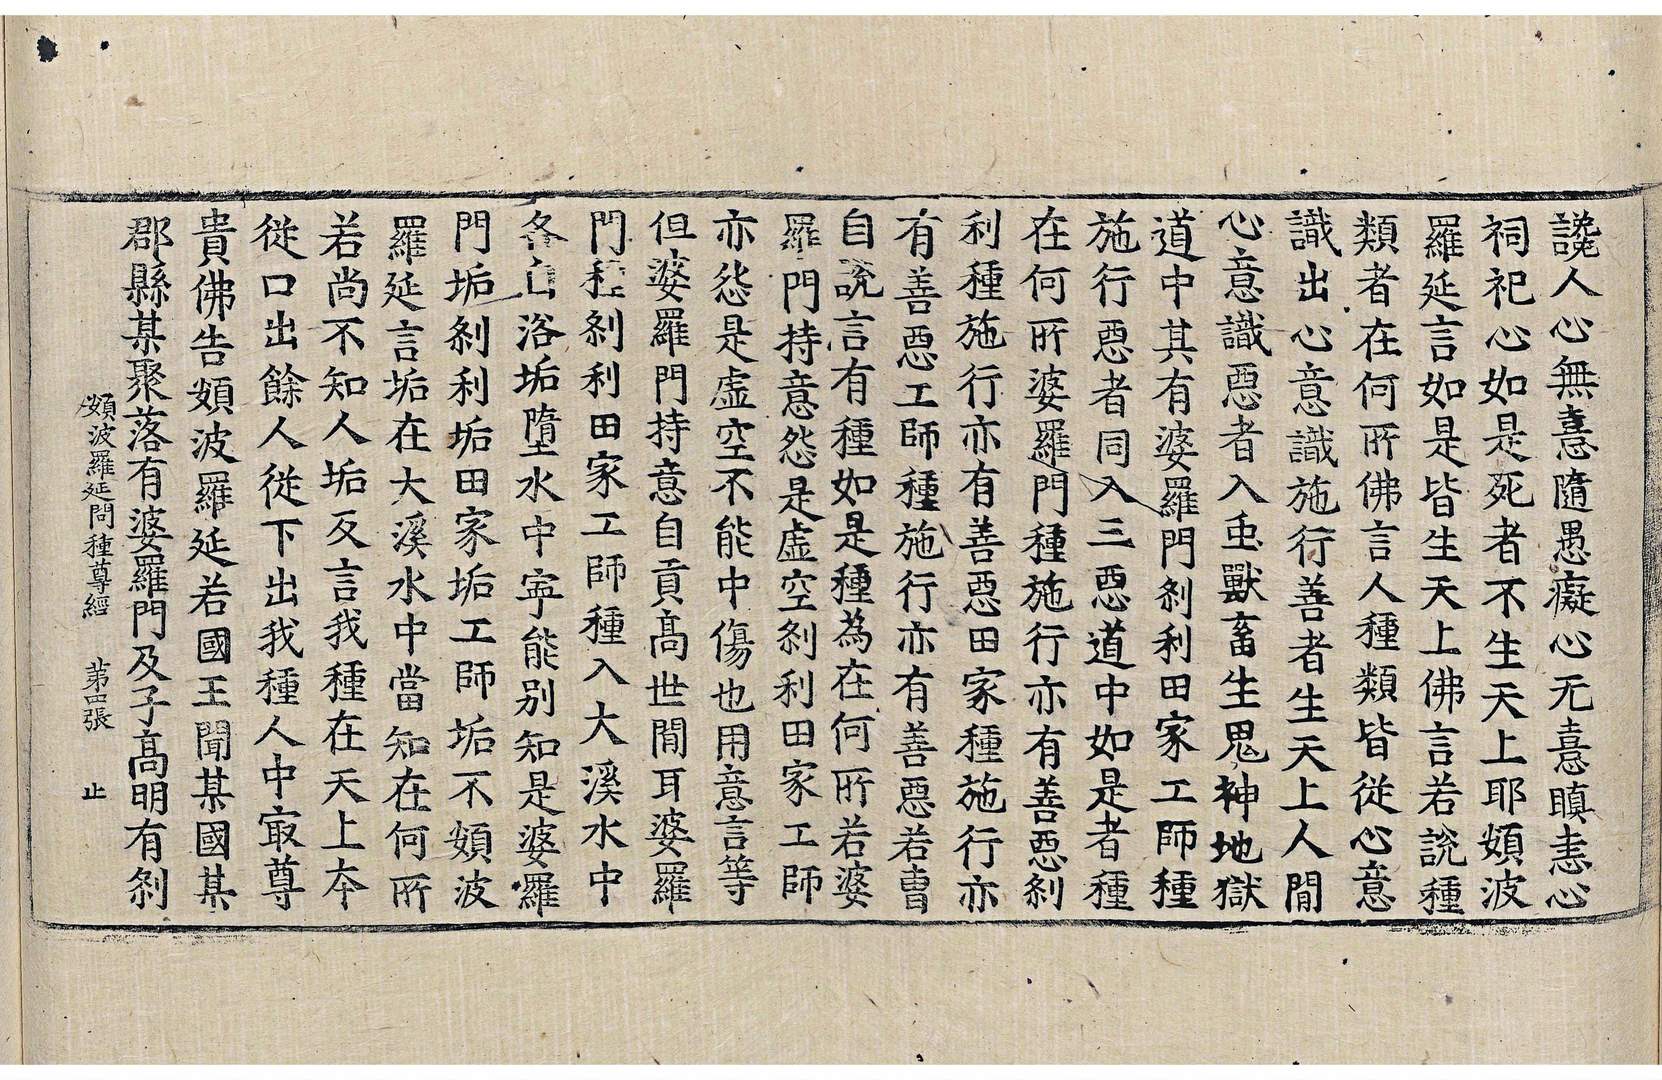 讒人心無憙隨愚癡心无憙瞋恚心
祠祀心如是死者不生天上耶頞波
羅延言如是皆生天上佛言若說種
類者在何所佛言人種類皆從心意
識出心意識施行善者生天上人間
心意識惡者入虫獸畜生鬼神地獄
道中其有婆羅門剎利田家工師種
施行惡者同入三惡道中如是者種
在何所婆羅門種施行亦有善惡剎
利種施行亦有善惡田家種施行亦
有善惡工師種施行亦有善惡若曹
自說言有種如是種為在何所若婆
羅門持意怨是虛空剎利田家工師
亦怨是虛空不能中傷也用意言等
但婆羅門持意自貢高世間耳婆羅
門種剎利田家工師種入大溪水中
各自浴垢墮水中寧能別知是婆羅
門垢剎利垢田家垢工師垢不頞波
羅延言垢在大溪水中當知在何所
若尚不知人垢反言我種在天上本
從口出餘人從下出我種人中㝡尊
貴佛告頞波羅延若國王聞某國某
郡縣某聚落有婆羅門及子高明有剎
頞波羅延問種尊經 第四張 止